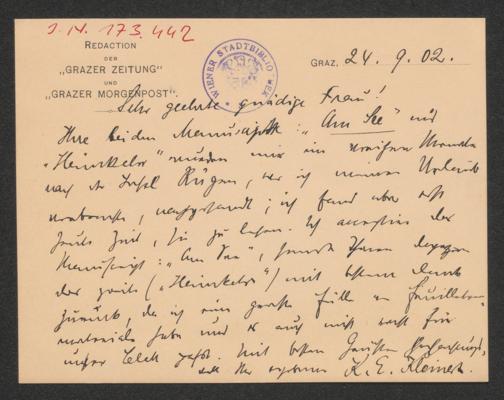 J. N. 173.442
REDACTION
DER
„GRAZER ZEITUNG“
UND
„GRAZER MORGENPOST“.
WIENER STADTBIBLIOTHEK
GRAZ, 24. 9. 02.
Sehr geehrte gnädige Frau!
Ihre beiden Manuscripte: „Am See“ und
„Heimkehr“ wurden mir im vorigen Monate
nach der Insel Rügen, wo ich meinen Urlaub
verbrachte, nachgesandt; ich fand aber erst
heute Zeit, sie zu lesen. Ich acceptire das
Manuscript: „Am See“, sende Ihnen dagegen
das zweite („Heimkehr“) mit bestem Dank
zurück, da ich eine große Fülle an Feuilleton-
materiale habe und es auch nicht recht für
unser Blatt paßt. Mit besten Grüßen hochachtungs-
voll Ihr ergebener K. E. Kleinert